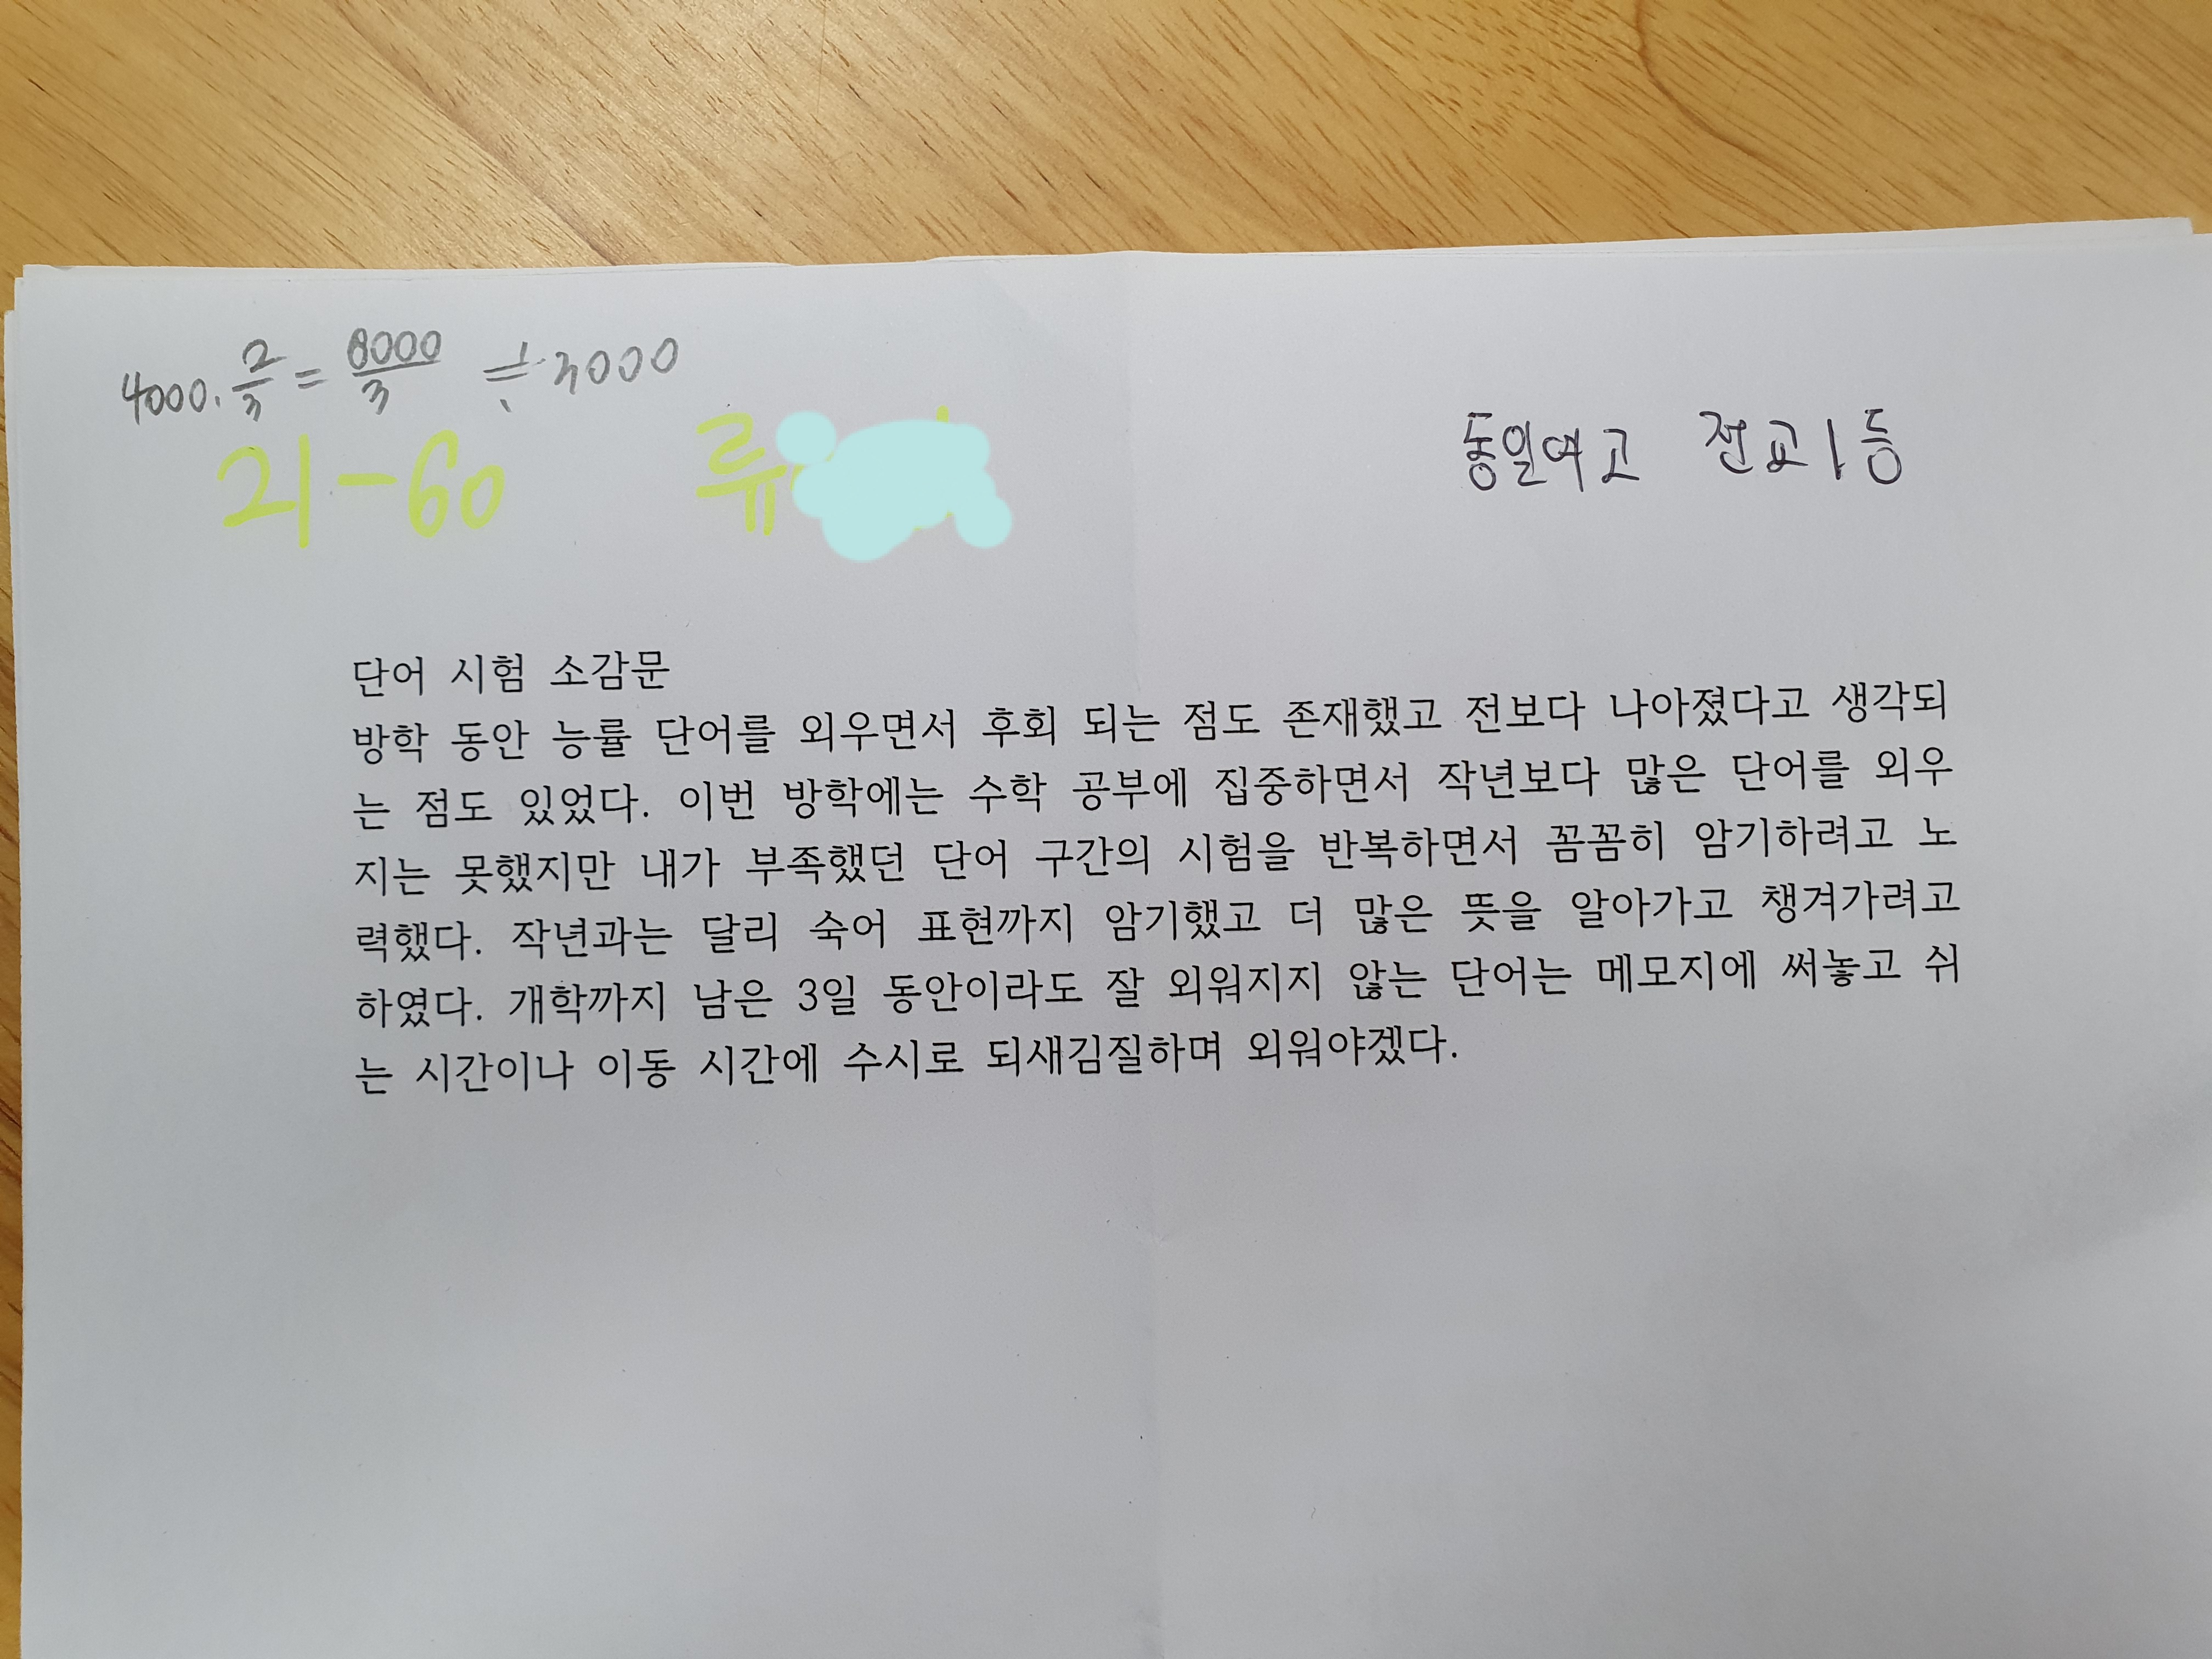 4000·2/3 = 8000/3 ≒ 3000
21-60 류
동일여고 전교1등
단어 시험 소감문
방학 동안 능률 단어를 외우면서 후회 되는 점도 존재했고 전보다 나아졌다고 생각되
는 점도 있었다. 이번 방학에는 수학 공부에 집중하면서 작년보다 많은 단어를 외우
지는 못했지만 내가 부족했던 단어 구간의 시험을 반복하면서 꼼꼼히 암기하려고 노
력했다. 작년과는 달리 숙어 표현까지 암기했고 더 많은 뜻을 알아가고 챙겨가려고
하였다. 개학까지 남은 3일 동안이라도 잘 외워지지 않는 단어는 메모지에 써놓고 쉬
는 시간이나 이동 시간에 수시로 되새김질하며 외워야겠다.